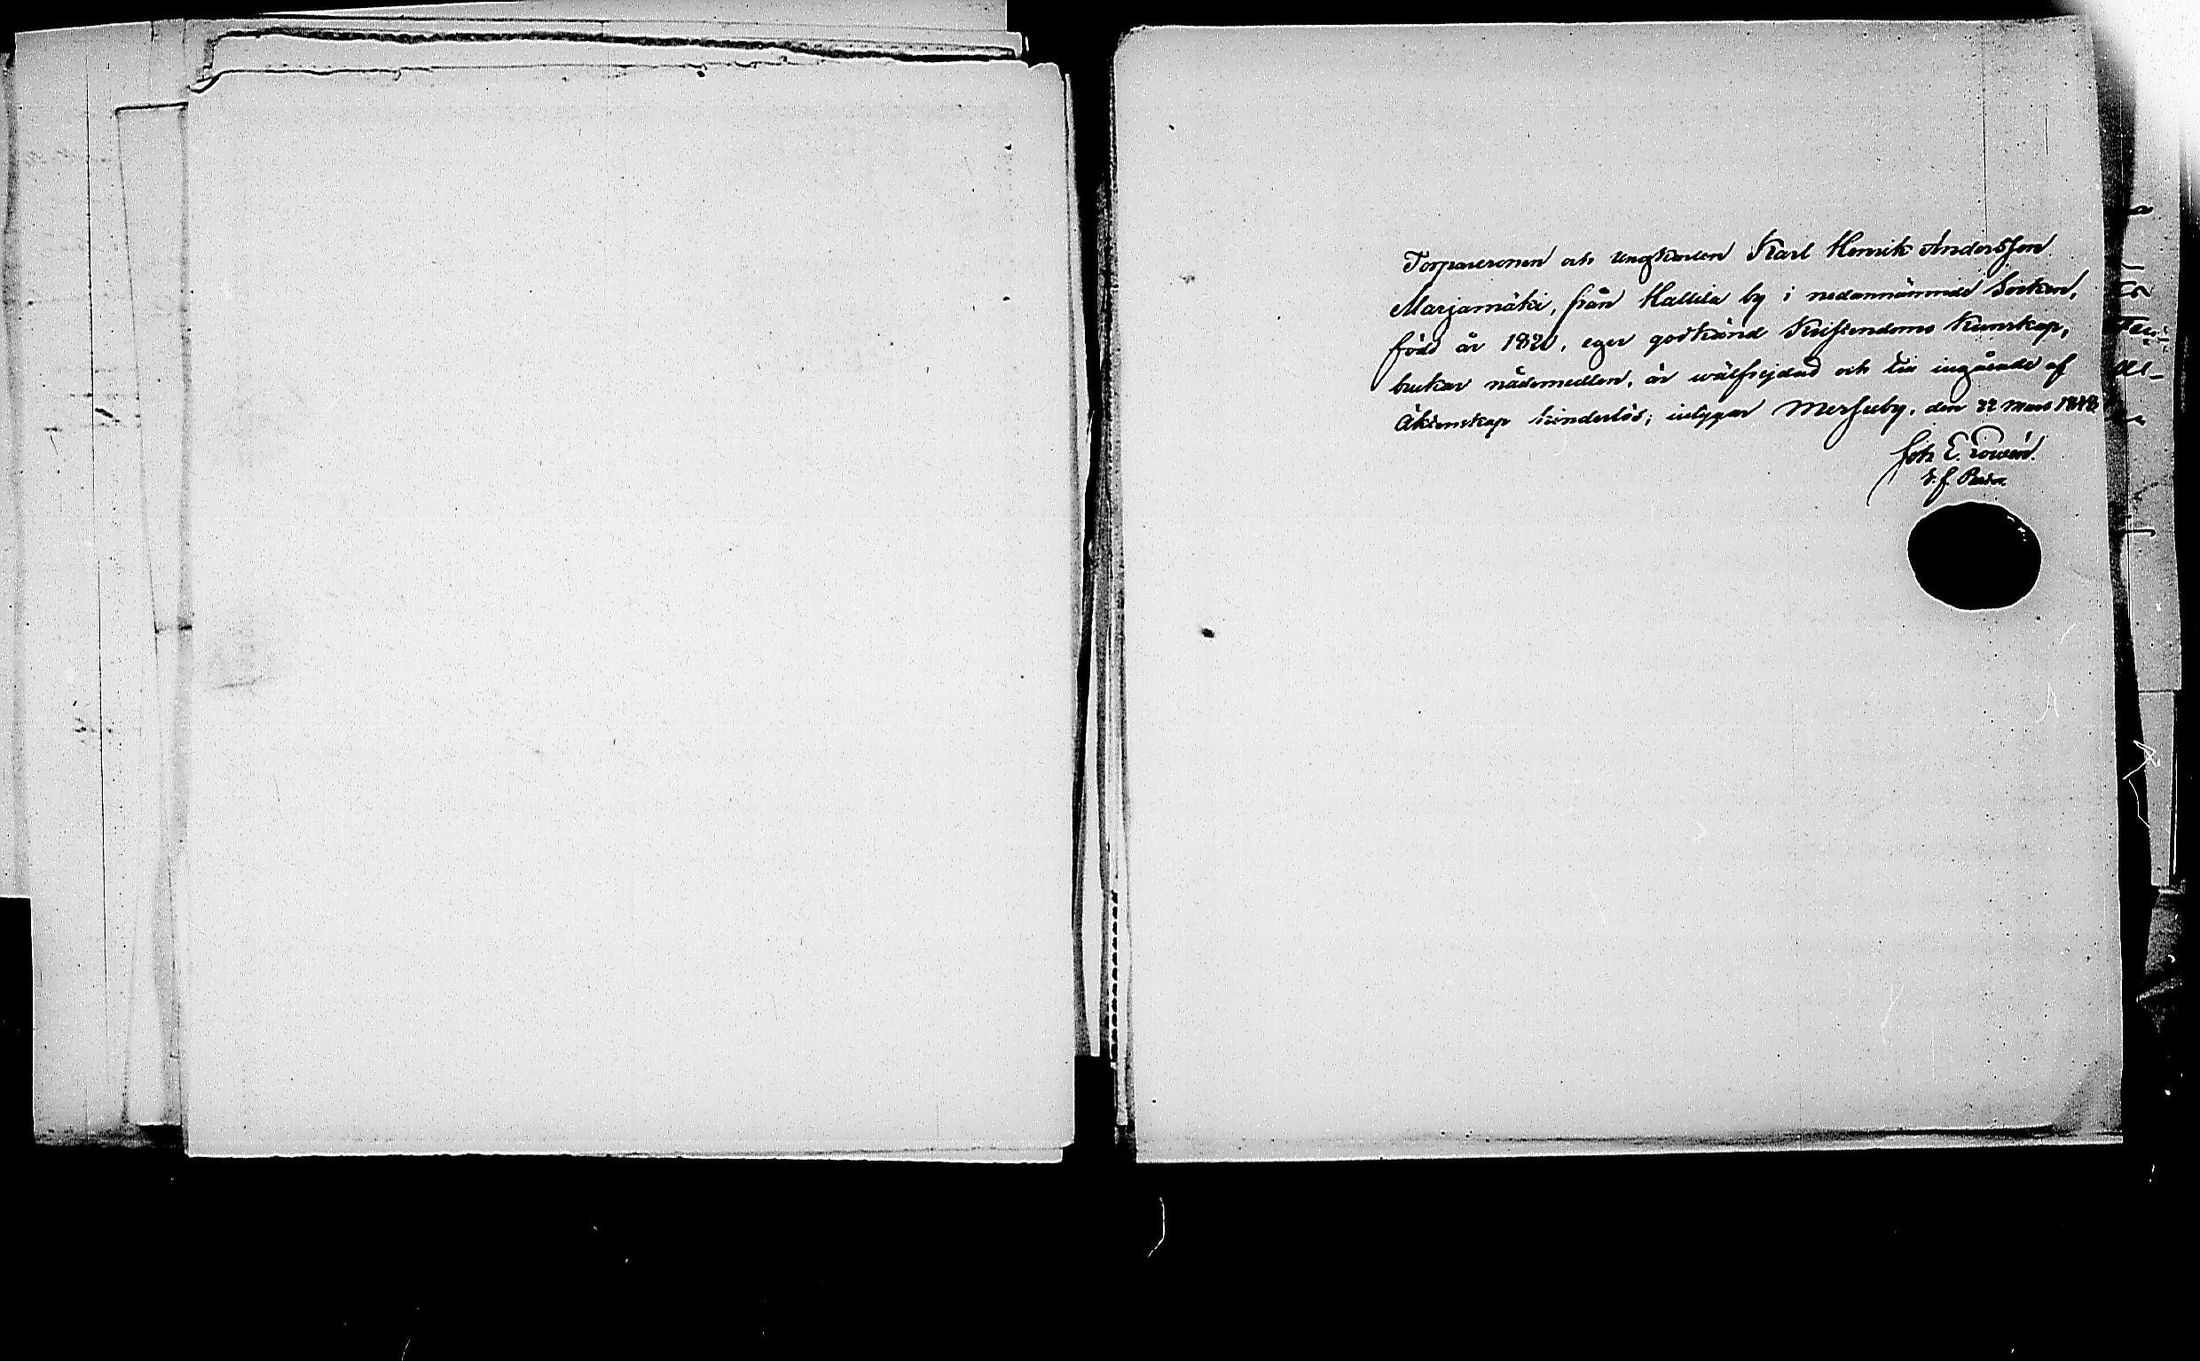 Torparesonen och ungkarlen Karl Henrik Andersson
Marjamäki, från Hallila by i nedannämnde Socken,
född år 1820, eger godkänd Kristendoms Kunskap,
brukar nådemedlen, är wälfrejdad och till ingående af
Äktenskap hinderlös; intygar Messuby, den 22 Mars 1848
Joh E.
v. f. Pastor.